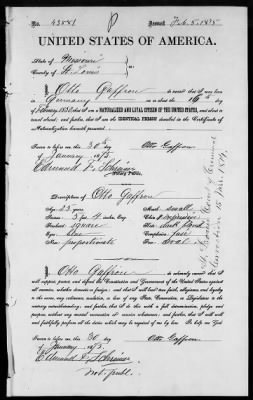 No. 43551 Issued Feb. 5. 1875
UNITED STATES OF AMERICA.
State of Missouri
County of St. Louis
I Otto Gaffron born in
Germany on or about the 16th day
of 1851 that I am a NATURALIZED AND LOYAL CITIZEN OF THE UNITED STATES, and about
to travel abroad; and further, that I am the IDENTICAL PERSON described in the Certificate of
Naturalization herewith presented.
Sworn to before me this 30th day Otto Gaffron
of January 1875
Edmund F. Schreiner
Notary Public.
Description of Otto Gaffron
Age: 23 years Mouth: small
Stature: 5 feet 4 inches, Eng. Chin:
Forehead: square Hair: dark blond
Eyes: blue Complexion: fair
Nose: proportionate Face: oval
St. Louis Court of Criminal
Correction
I, Otto Gaffron do solemnly swear that I
will support, protect and defend the Constitution and Government of the United States against
all enemies, whether domestic or foreign; and that I will bear true faith, allegiance and loyalty
to the same, any ordinance, resolution, or law of any State, Convention, or Legislature to the
contrary notwithstanding; and further, that I do this with a full determination, pledge and
purpose, without any mental reservation or evasion whatsoever; and further, that I will well
and faithfully perform all the duties which may be required of me by law. So help me God
Sworn to before me this 30 day Otto Gaffron
of January 1875.
Edmund F. Schreiner
Not. publ.